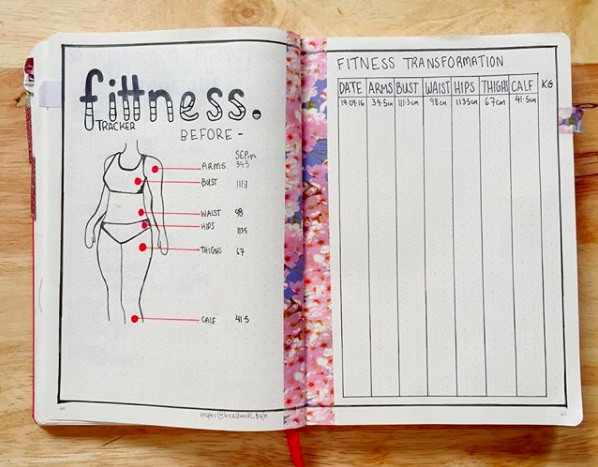 fittness.
TRACKER
BEFORE -
ARMS 34.5
BUST 111.3
WAIST 98
HIPS 113.5
THIGHS 67
CALF 41.5
FITNESS TRANSFORMATION
DATE ARMS BUST WAIST HIPS THIGHS CALF KG
19.09.16 34.5cm 111.3cm 98cm 113.5cm 67cm 41.5cm